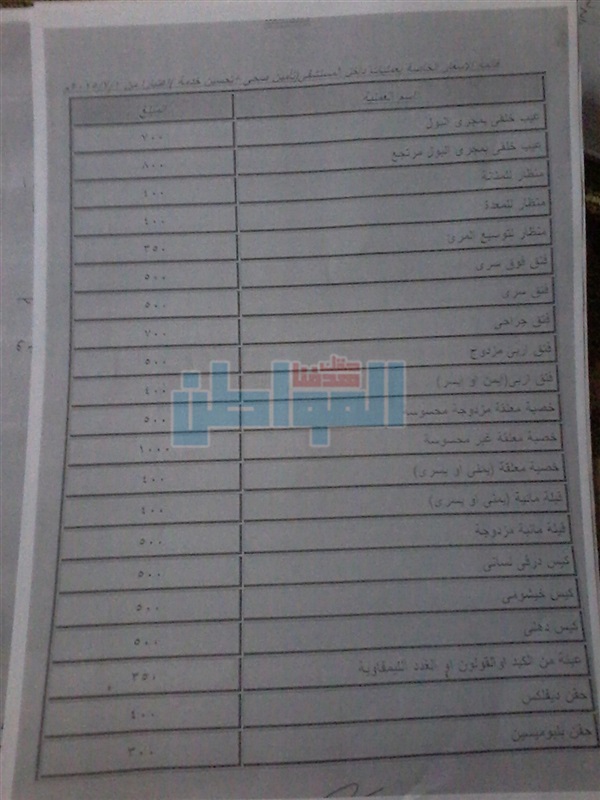 قائمة الاسعار الخاصة بعمليات داخل المستشفى (تأمين صحى - تحسين خدمة
اسم العملية المبلغ
عيب خلفى بمجرى البول ٧٠٠
عيب خلفى بمجرى البول مرتجع ٨٠٠
منظار للمثانة ٤٠٠
منظار للمعدة ٤٠٠
منظار لتوسيع المرئ ٣٥٠
فتق فوق سرى ٥٠٠
فتق سرى ٥٠٠
فتق جراحى ٧٠٠
فتق اربى مزدوج ٥٠٠
فتق اربى (ايمن او ايسر) ٤٠٠
خصية معلقة مزدوجة محسوسة ٥٠٠
خصية معلقة غير محسوسة ١٠٠٠
خصية معلقة (يمنى او يسرى) ٤٠٠
قيلة مائية (يمنى او يسرى) ٤٠٠
قيلة مائية مزدوجة ٥٠٠
كيس درقى لسانى ٥٠٠
كيس خيشومى ٥٠٠
كيس دهنى ٥٠٠
عينة من الكبد او القولون او الغدد الليمفاوية ٣٥٠
حقن ديفلكس ٤٠٠
حقن بليوميسين ٣٠٠
المواطن